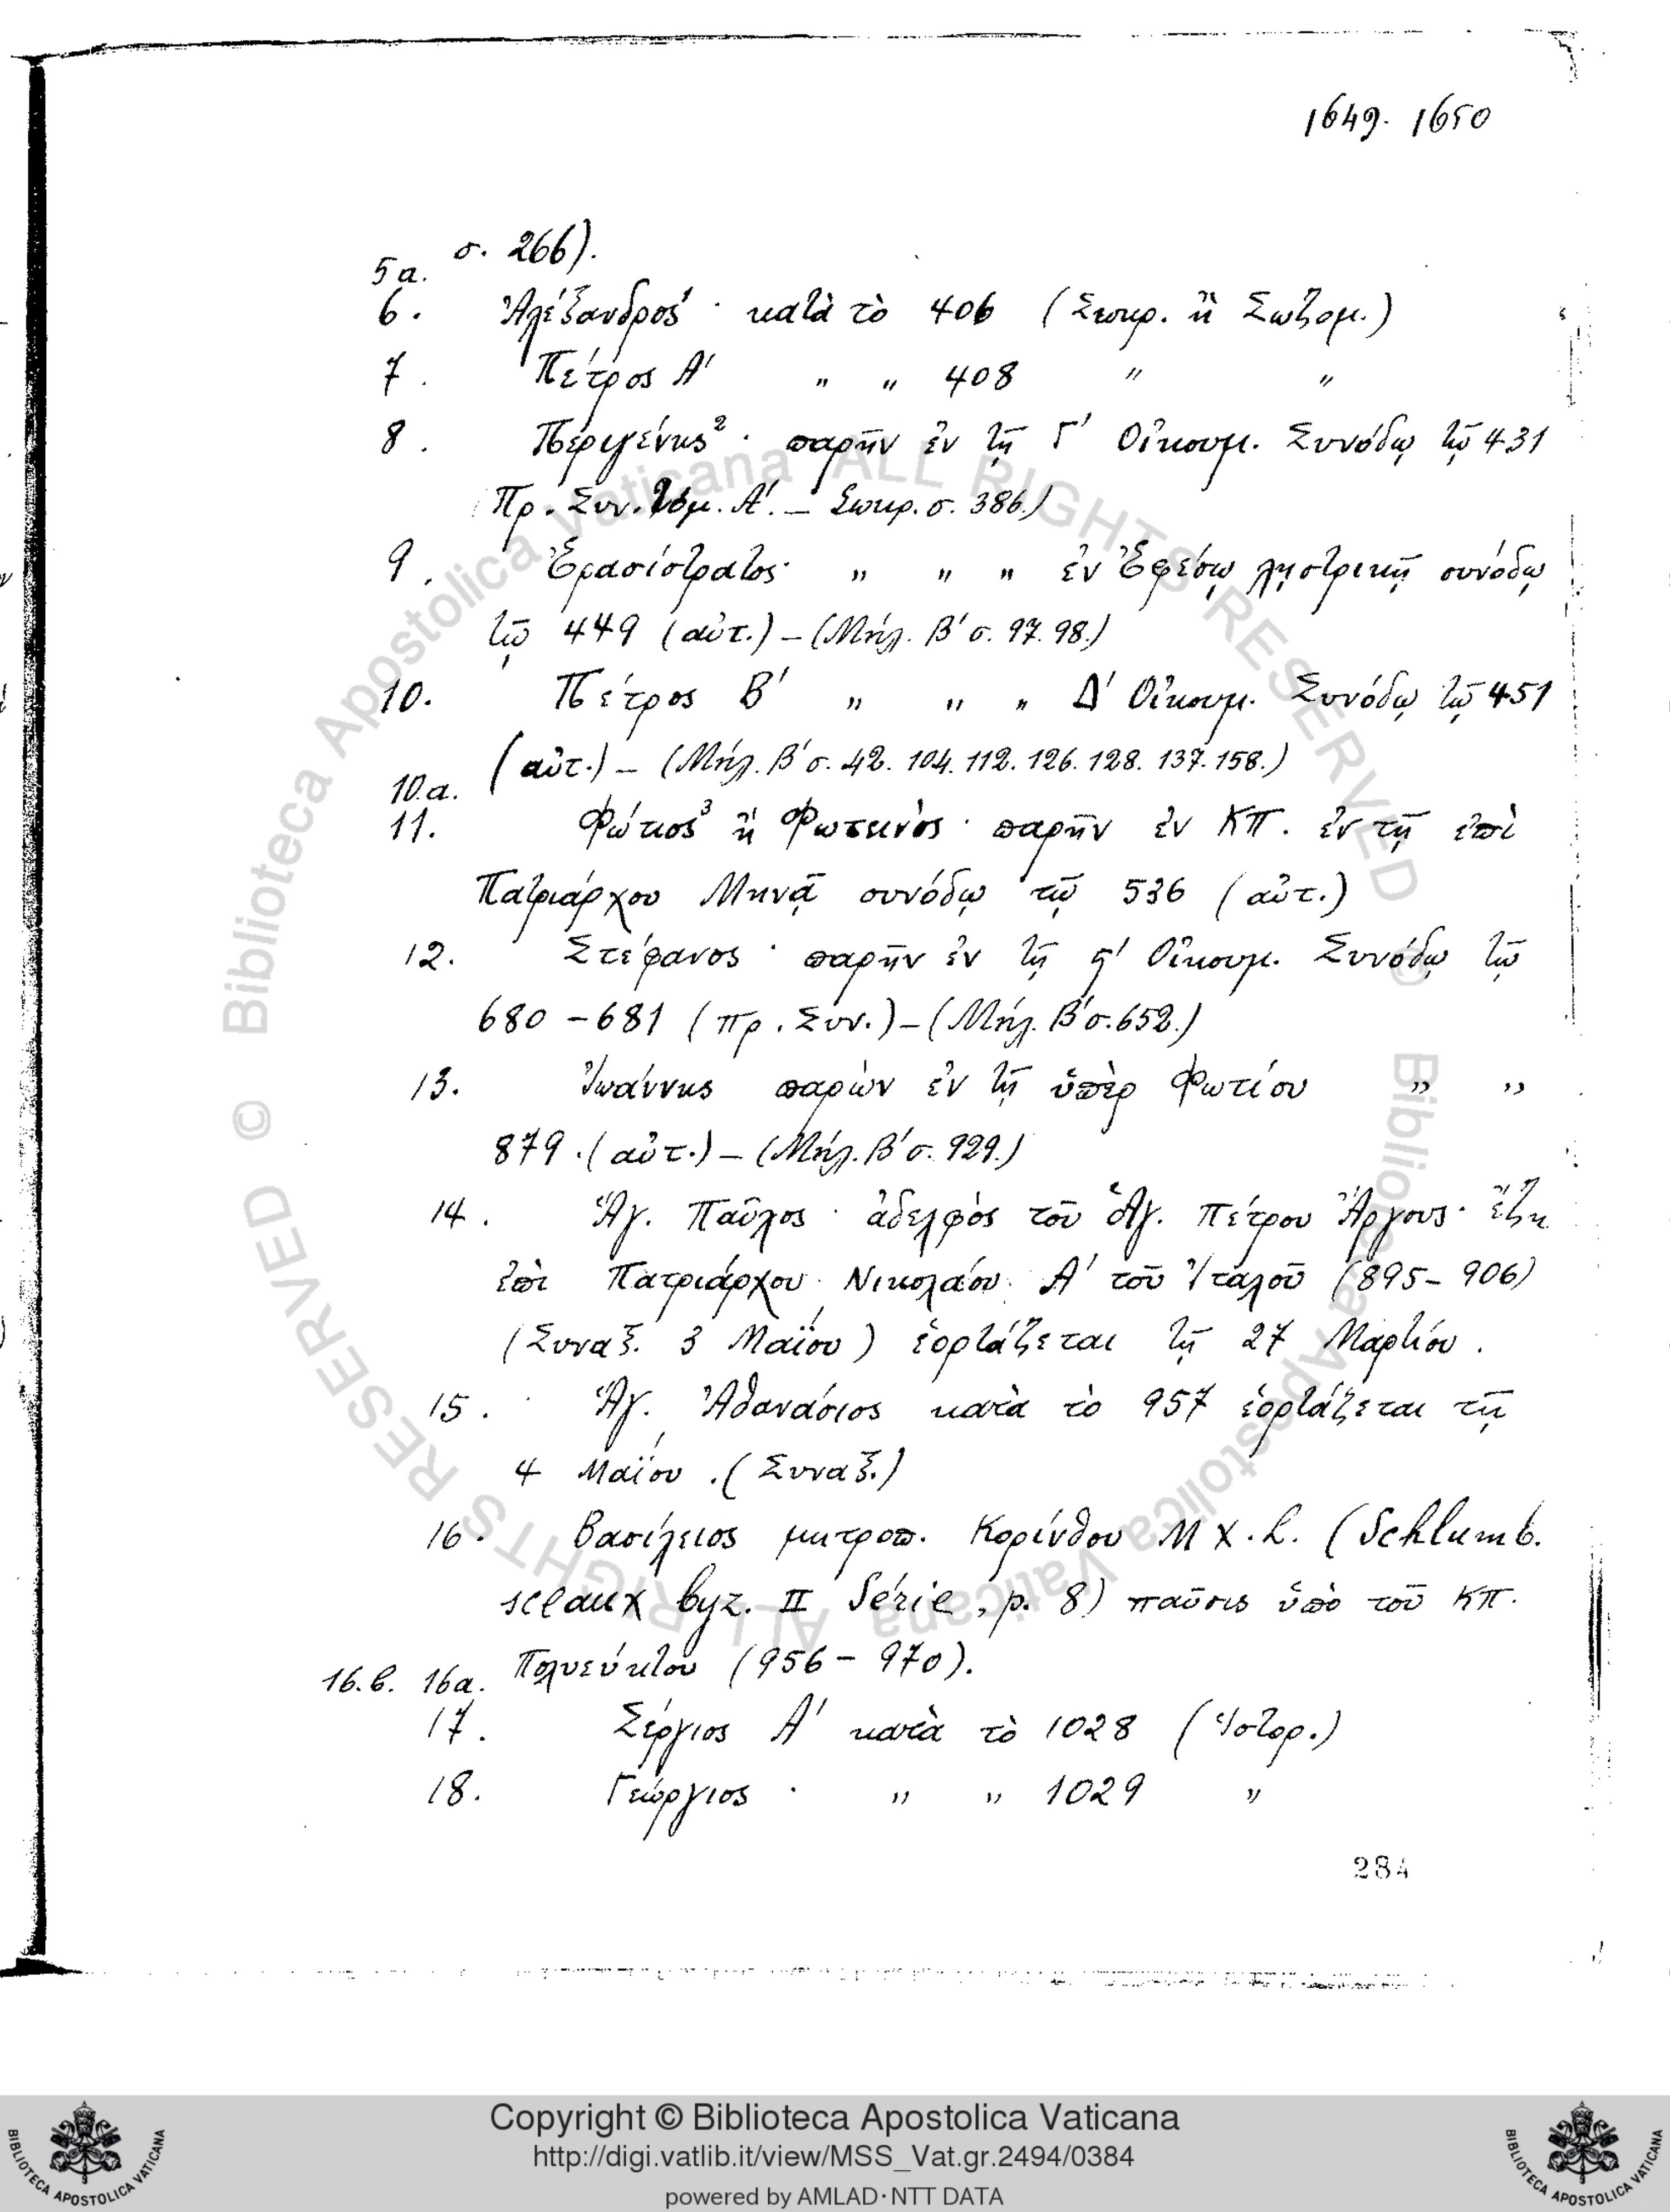 1649. 1650
σ. 266).
5a.
6. Ἀλέξανδρος¹ · κατὰ τὸ 406 (Σωκρ. ἢ Σωζομ.)
7. Πέτρος Α′ " " 408 " "
8. Περιγένης² · παρῆν ἐν τῇ Γ′ Οἰκουμ. Συνόδῳ τῷ 431
Πρ. Συν. Τόμ. Α′. – Σωκρ. σ. 386.)
9. Ἐρασίστρατος · " " " ἐν Ἐφέσῳ λῃστρικῇ συνόδῳ
τῷ 449 (αὐτ.) – (Μήλ. Β′ σ. 97. 98.)
10. Πέτρος Β′ " " " Δ′ Οἰκουμ. Συνόδῳ τῷ 451
(αὐτ.) – (Μήλ. Β′ σ. 42. 104. 112. 126. 128. 137. 158.)
10.a.
11. Φώτιος³ ἢ Φωτεινὸς · παρῆν ἐν ΚΠ. ἐν τῇ ἐπὶ
Πατριάρχου Μηνᾶ συνόδῳ τῷ 536 (αὐτ.)
12. Στέφανος · παρῆν ἐν τῇ ϛ′ Οἰκουμ. Συνόδῳ τῷ
680 – 681 (πρ. Συν.) – (Μήλ. Β′ σ. 652.)
13. Ἰωάννης παρὼν ἐν τῇ ὑπὲρ Φωτίου " "
879. (αὐτ.) – (Μήλ. Β′ σ. 929.)
14. Ἁγ. Παῦλος · ἀδελφὸς τοῦ Ἁγ. Πέτρου Ἄργους · ἔζη
ἐπὶ Πατριάρχου Νικολάου Α′ τοῦ Ἰταλοῦ (895 – 906)
(Συναξ. 3 Μαΐου) ἑορτάζεται τῇ 27 Μαρτίου.
15. Ἁγ. Ἀθανάσιος κατὰ τὸ 957 ἑορτάζεται τῇ
4 Μαΐου. (Συναξ.)
16. Βασίλειος μητροπ. Κορίνθου Μ Χ. L. (Schlumb.
sceaux byz. II Série, p. 8) παῦσις ὑπὸ τοῦ ΚΠ.
Πολυεύκτου (956 – 970).
16.b. 16a.
17. Σέργιος Α′ κατὰ τὸ 1028 (Ἱστορ.)
18. Γεώργιος · " " 1029 "
284
© Biblioteca Apostolica Vaticana ALL RIGHTS RESERVED
© Biblioteca Apostolica Vaticana ALL RIGHTS RESERVED
Copyright © Biblioteca Apostolica Vaticana
http://digi.vatlib.it/view/MSS_Vat.gr.2494/0384
powered by AMLAD·NTT DATA
BIBLIOTECA APOSTOLICA VATICANA
BIBLIOTECA APOSTOLICA VATICANA